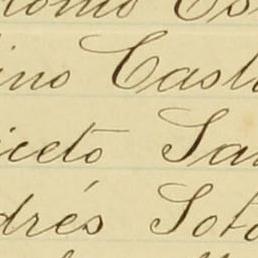 onio Es
ino Casta
iceto San
drés Soto